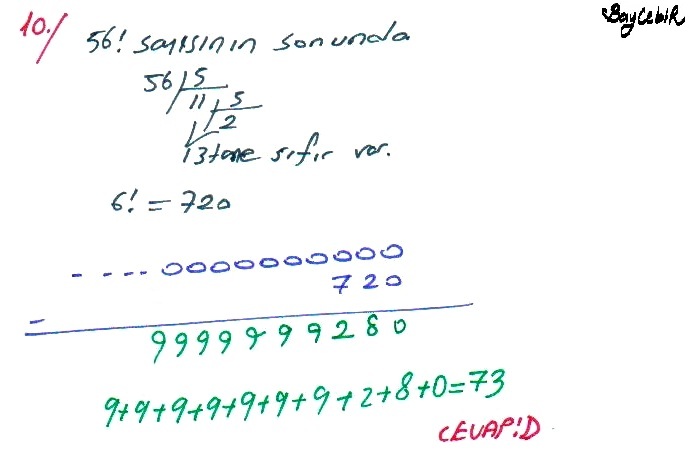 BaycebiR
10./ 56! sayısının sonunda
56 5
11 5
2
13 tane sıfır var.
6! = 720
- - - - - 00000000000
720
-
9999999280
9+9+9+9+9+9+9+2+8+0=73
CEVAP:D